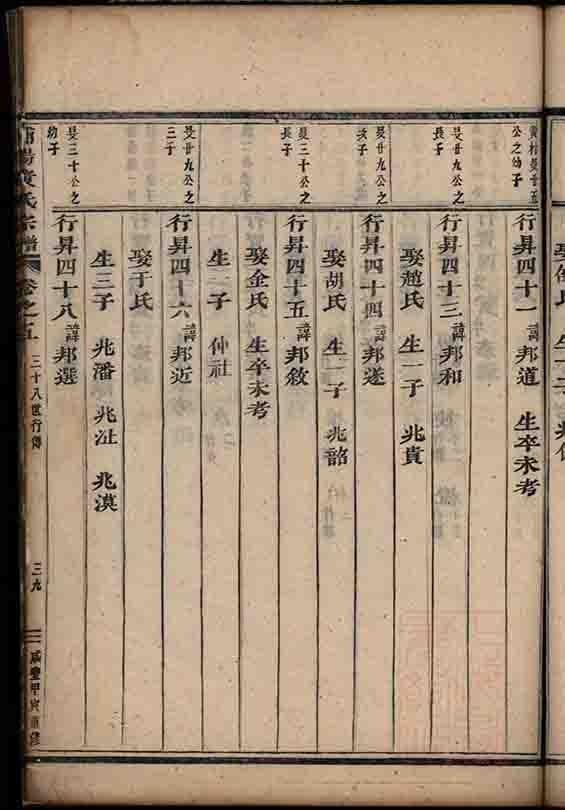 行昇四十一 諱邦道 生卒未考
旻廿九公之
長子
行昇四十三 諱邦和
娶趙氏 生一子 兆貴
旻廿九公之
次子
行昇四十四 諱邦遂
娶胡氏 生一子 兆韶
旻三十公之
長子
行昇四十五 諱邦敘
娶金氏 生卒未考
生一子 仲社
旻廿九公之
三子
行昇四十六 諱邦近
娶于氏
生三子 兆潘 兆沚 兆漠
旻三十公之
幼子
行昇四十八 諱邦選
黃氏宗譜
卷之五
三十八世行傳
三九
咸豐甲寅重修